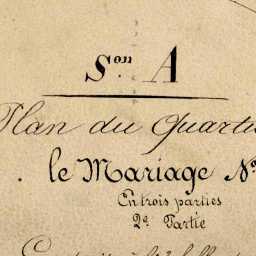 Son A
Plan du Quartier
le Mariage No
En trois parties
2e Partie